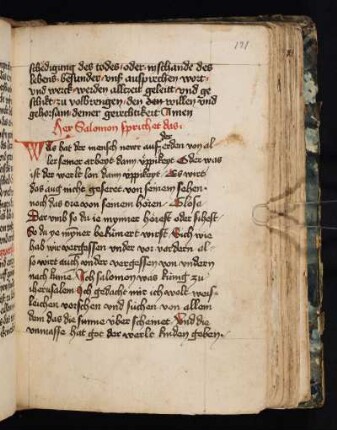 191
schedigung des todes oder wischande des
lebens besunder vnß aufsprechen wort
vnd werck werden allczeit geleitt vnd ge
schikt zu volbrengen den den willen vnd
gehorsam deiner gerechtikeit Amen
Her Salomon sprichet das
Was hat der mensch mer auf erden von al
ler seiner arbeyt dann vppikeyt Oder was
ist der werlt lon dann vppikeyt Es wirt
das aug nicht gesatet von seinem sehen
noch das ore von seinem hören
Dar vmb so du ie mynner hörest oder sihest
So du ie mynner bekümert wirst Sich wie
hab wir vergessen vnser vor vordern al
so wirt auch vnser vergessen von vnsern
nach kume Ich salomon was künig zu
iherusalem Ich gedacht mir ich wolt weis
lichen vorschen vnd suchen von allem
dem das die sunne vber scheinet Vnd die
vnmusse hat got der werlt kinden geben